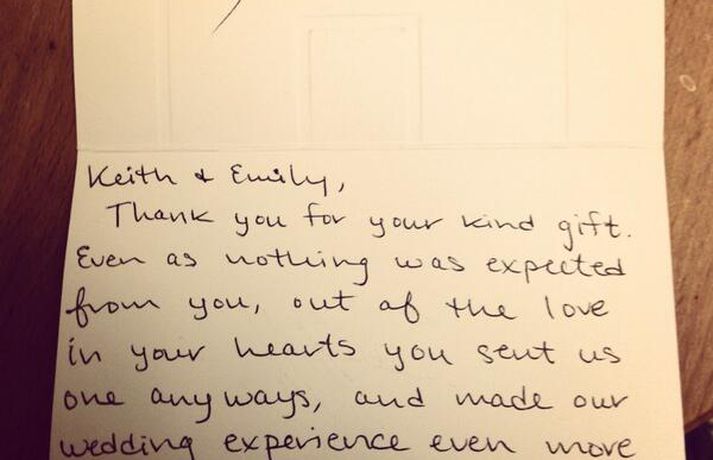 Keith & Emily,
Thank you for your kind gift.
Even as nothing was expected
from you, out of the love
in your hearts you sent us
one anyways, and made our
wedding experience even more